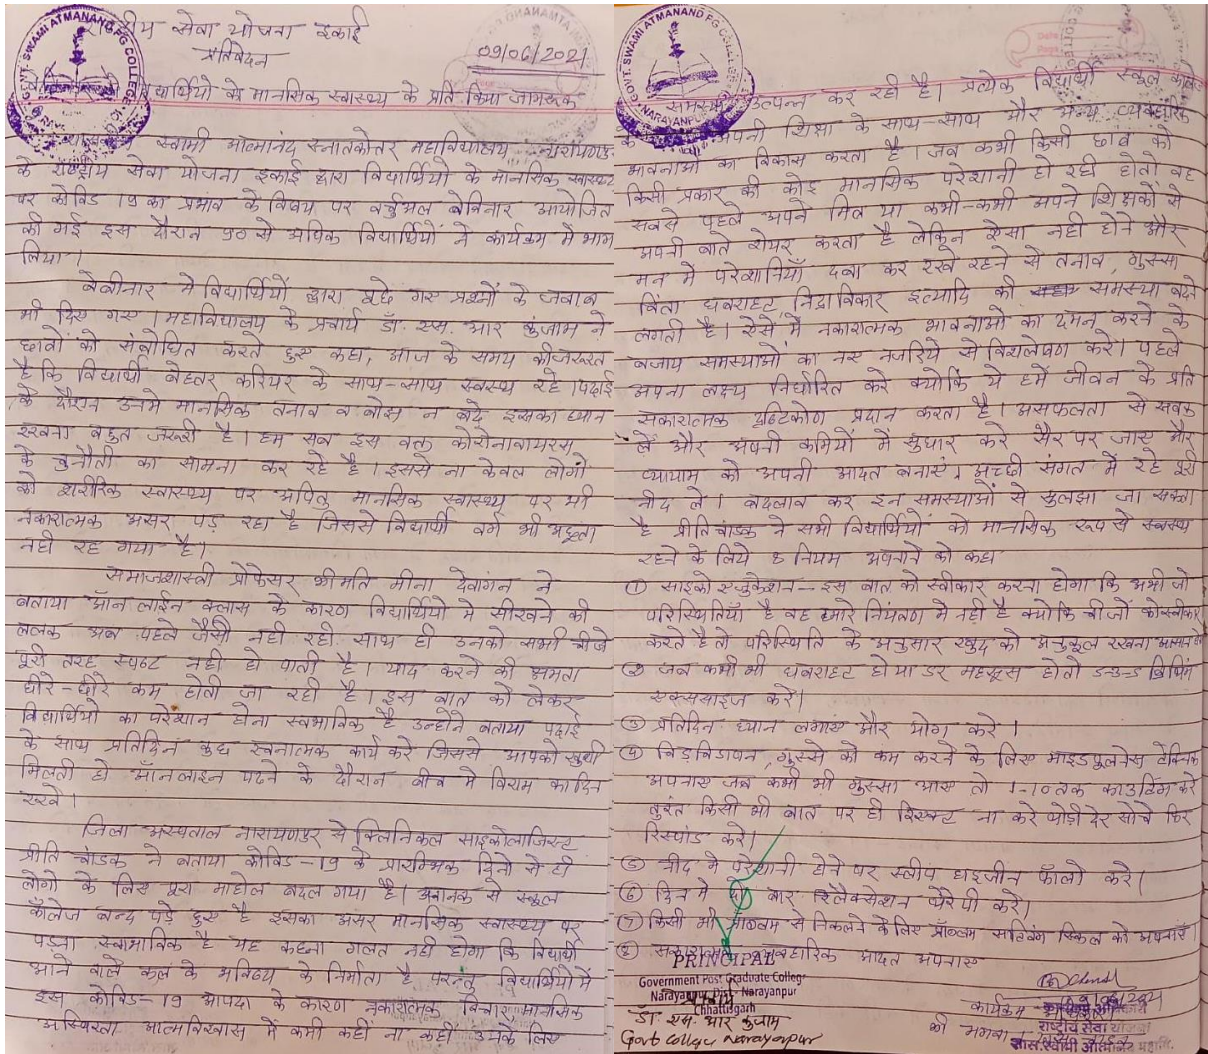 राष्ट्रीय सेवा योजना इकाई
प्रतिवेदन
09/06/2021
विद्यार्थियो को मानसिक स्वास्थ्य के प्रति किया जागरूक
शासकीय स्वामी आत्मानंद स्नातकोत्तर महाविद्यालय नारायणपुर
के राष्ट्रीय सेवा योजना इकाई द्वारा विद्यार्थियो के मानसिक स्वास्थ्य
पर कोविड 19 का प्रभाव के विषय पर वर्चुअल वेबिनार आयोजित
की गई इस दौरान 90 से अधिक विद्यार्थियों ने कार्यक्रम मे भाग
लिया।
वेबीनार मे विद्यार्थियों द्वारा पूछे गए प्रश्नों के जवाब
भी दिए गए। महाविद्यालय के प्राचार्य डॉ. एस. आर कुंजाम ने
छात्रों को संबोधित करते हुए कहा, आज के समय की जरूरत
है कि विद्यार्थी बेहतर करियर के साथ-साथ स्वस्थ रहे। पढ़ाई
के दौरान उनमे मानसिक तनाव व बोझ न बढ़े इसका ध्यान
रखना बहुत जरूरी है। हम सब इस वक्त कोरोनावायरस
के चुनौती का सामना कर रहे है। इससे ना केवल लोगो
को शारीरिक स्वास्थ्य पर अपितु मानसिक स्वास्थ्य पर भी
नकारात्मक असर पड़ रहा है जिससे विद्यार्थी वर्ग भी अछूता
नही रह गया है।
समाजशास्त्री प्रोफेसर श्रीमति मीना देवांगन ने
बताया ऑनलाईन क्लास के कारण विद्यार्थियो मे सीखने की
ललक अब पहले जैसी नही रही साथ ही उनको सभी चीजे
पूरी तरह स्पष्ट नही हो पाती है। याद करने की क्षमता
धीरे-धीरे कम होती जा रही है। इस बात को लेकर
विद्यार्थियो का परेशान होना स्वभाविक है उन्होने बताया पढ़ाई
के साथ प्रतिदिन कुछ रचनात्मक कार्य करे जिससे आपको खुशी
मिलती हो ऑनलाइन पढने के दौरान बीच मे विराम का दिन
रखे।
जिला अस्पताल नारायणपुर से क्लिनिकल साइकोलाजिस्ट
प्रीति चांडक ने बताया कोविड-19 के प्रारम्भिक दिनो से ही
लोगो के लिए पूरा माहोल बदल गया है। अचानक से स्कूल
कॉलेज बन्द पड़े हुए है इसका असर मानसिक स्वास्थ्य पर
पड़ना स्वाभाविक है यह कहना गलत नही होगा कि विद्यार्थी
आने वाले कल के भविष्य के निर्माता है परन्तु विद्यार्थियो में
इस कोविड-19 आपदा के कारण नकारात्मक विचार, मानसिक
अस्थिरता आत्मविश्वास में कमी कही ना कही उनके लिए
समस्या उत्पन्न कर रही है। प्रत्येक विद्यार्थी स्कूल कॉलेज
के अपनी शिक्षा के साथ-साथ और अन्य व्यवहारिक
भावनाओ का विकास करता है। जब कभी किसी छात्र को
किसी प्रकार की कोई मानसिक परेशानी हो रही होतो वह
सबसे पहले अपने मित्र या कभी-कभी अपने शिक्षकों से
अपनी बाते शेयर करता है लेकिन ऐसा नही होने और
मन मे परेशानियाँ दबा कर रखे रहने से तनाव, गुस्सा
चिंता घबराहट, निद्राविकार इत्यादि की समस्या बढने
लगती है। ऐसे में नकारात्मक भावनाओ का दमन करने के
बजाय समस्याओं का नए नजरिये से विश्लेषण करे। पहले
अपना लक्ष्य निर्धारित करे क्योकि ये हमें जीवन के प्रति
सकारात्मक दृष्टिकोण प्रदान करता है। असफलता से सबक
ले और अपनी कमियों में सुधार करे सैर पर जाए और
व्यायाम को अपनी आदत बनाएं, अच्छी संगत में रहे पूरी
नीद ले। बदलाव कर इन समस्याओं से सुलझा जा सकता
है प्रीति चांडक ने सभी विद्यार्थियों को मानसिक रूप से स्वस्थ
रहने के लिये 8 नियम अपनाने को कहा
① साइको एजुकेशन - इस बात को स्वीकार करना होगा कि अभी जो
परिस्थितियाँ है वह हमारे नियंत्रण मे नही है क्योकि चीजों को स्वीकार
करते है तो परिस्थिति के अनुसार खुद को अनुकूल रखना आसान हो
② जब कभी भी घबराहट हो या डर महसूस होतो 3-3-3 ब्रिथिंग
एक्सरसाइज करे।
③ प्रतिदिन ध्यान लगाए और योग करे ।
④ चिड़चिड़ापन, गुस्से को कम करने के लिए माइंडफुलनेस टेक्निक
अपनाए जब कभी भी गुस्सा आए तो 1-10 तक काउटिंग करे
तुरंत किसी भी बात पर ही रिएक्ट ना करे थोड़ी देर सोचे फिर
रिस्पांड करे।
⑤ नीद मे परेशानी होने पर स्लीप हाइजीन फॉलो करे।
⑥ दिन मे दो बार रिलैक्सेशन थेरेपी करे।
⑦ किसी भी प्राब्लम से निकलने के लिए प्रॉब्लम साल्विंग स्किल को अपनाएं।
⑧ सकारात्मक व्यवहारिक आदत अपनाए
PRINCIPAL
Government Post Graduate College
Narayanpur Dist- Narayanpur
Chhattisgarh
प्राचार्य
डॉ एस. आर कुंजाम
Govt college Narayanpur
09/06/2021
कार्यक्रम अधिकारी
राष्ट्रीय सेवा योजना
शास. स्वामी आत्मानंद महावि.